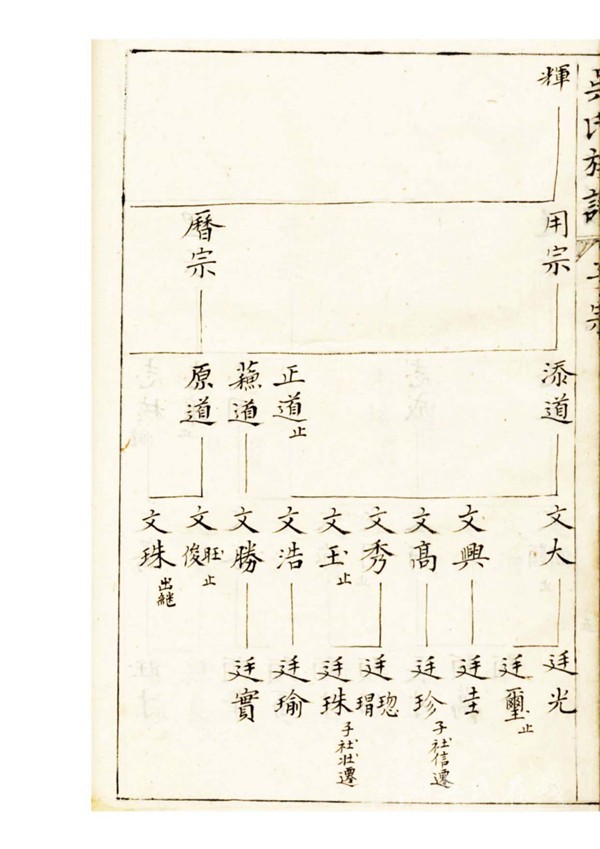 吳氏族譜
輝
用宗
曆宗
添道
正道止
蘓道
原道
文大
文興
文高
文秀
文玉止
文浩
文勝
文旺止
俊
文珠出継
廷光
廷璽止
廷圭
廷珍子社信遷
廷璁
瑁
廷珠子社壯遷
廷瑜
廷實